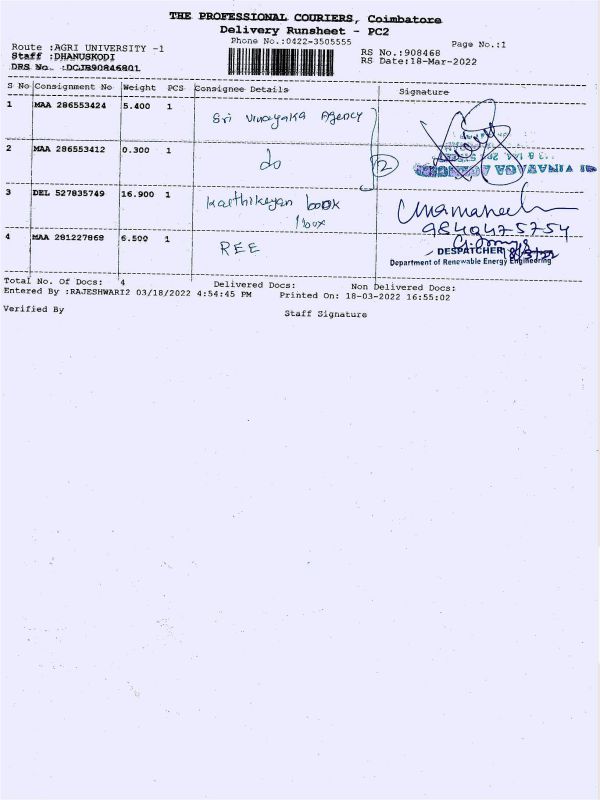 THE PROFESSIONAL COURIERS, Coimbatore
Delivery Runsheet - PC2
Phone No.:0422-3505555
Page No.:1
Route :AGRI UNIVERSITY -1
Staff :DHANUSKODI
DRS No. :DCJB90846801
RS No.:908468
RS Date:18-Mar-2022
S No Consignment No Weight PCS Consignee Details Signature
1 MAA 286553424 5.400 1 Sri Vinayaka Agency
2 MAA 286553412 0.300 1 do 2
3 DEL 527835749 16.900 1 Karthikeyan book
1 box
Umamahesh
9840475754
4 MAA 281227868 6.500 1 REE
DESPATCHER
Department of Renewable Energy Engineering
Total No. Of Docs: 4 Delivered Docs: Non Delivered Docs:
Entered By :RAJESHWARI2 03/18/2022 4:54:45 PM Printed On: 18-03-2022 16:55:02
Verified By Staff Signature